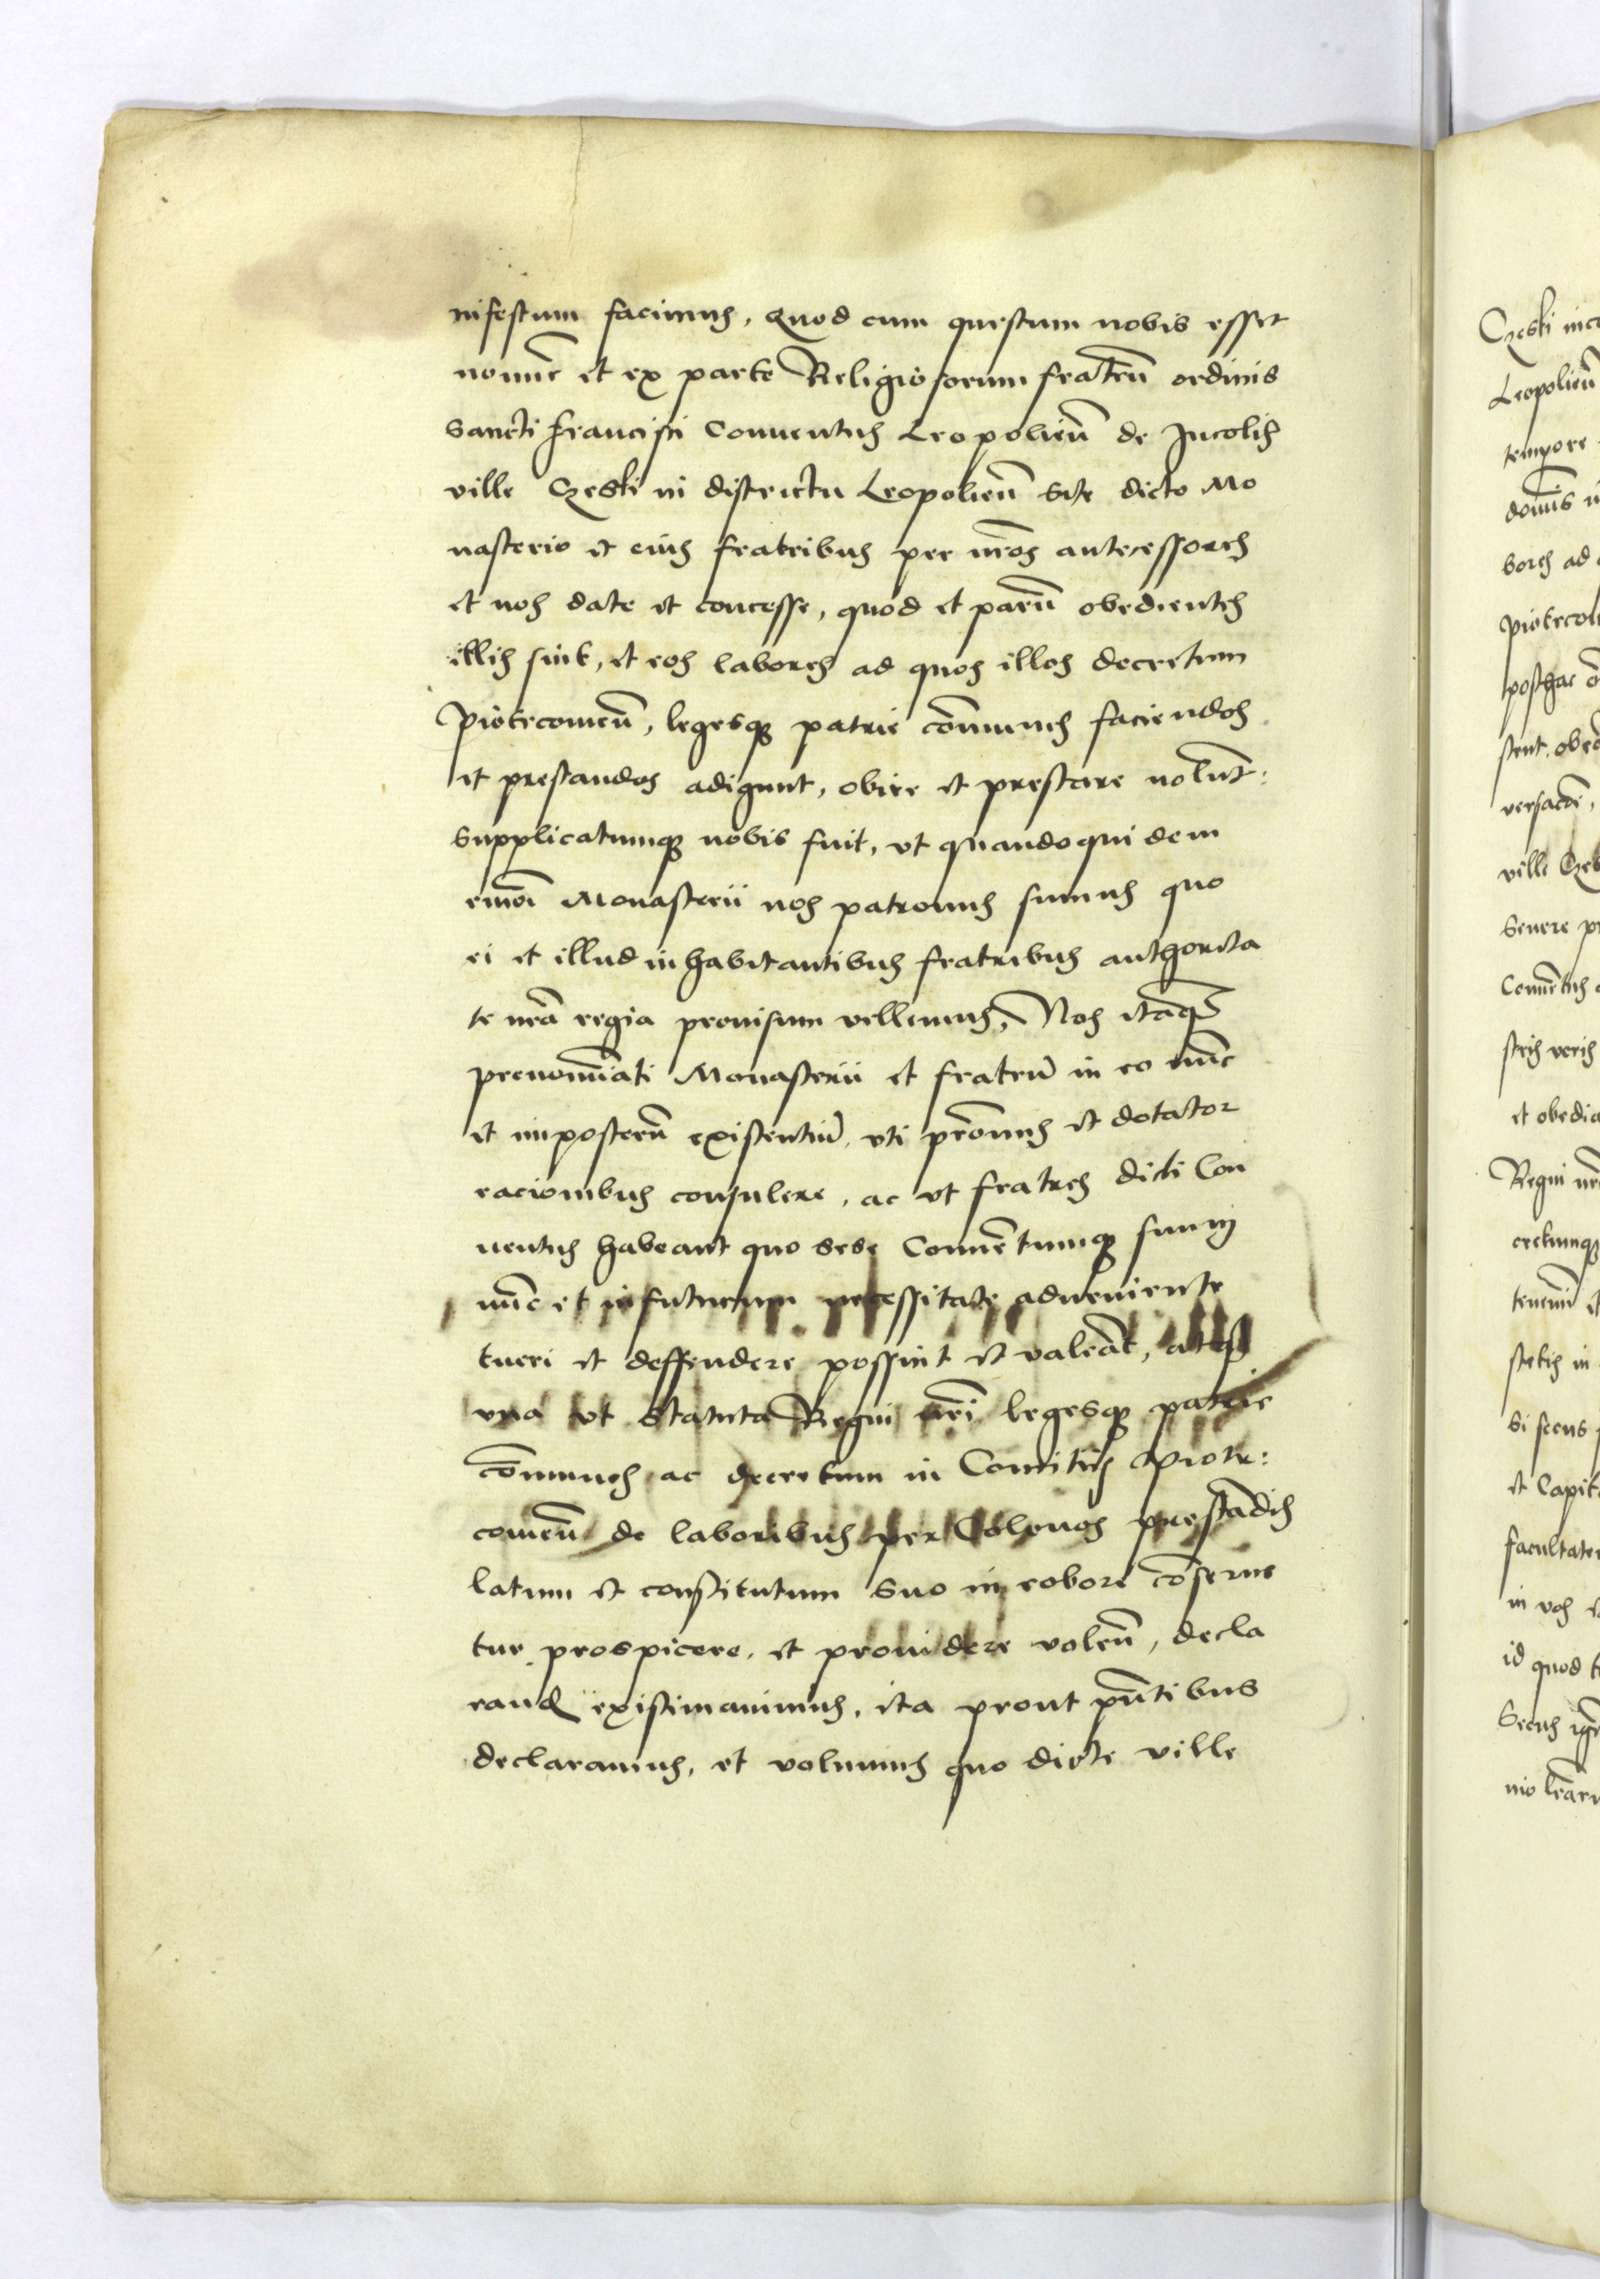 nifestum facimus, Quod cum questum nobis esset
nomīe et ex parte Religiosorum fratrū ordinis
Sancti Francisci Conuentus Leopolieñ de Incolis
ville Czeski in districtu Leopolieñ site dicto Mo
nasterio et eius fratribus per nr̄os antecessores
et nos date et concesse, quod et parū obedientes
illis sint, et eos labores ad quos illos decretum
Piotrcouieñ, legesq patrie cōmunes faciendos
et prestandos adigunt, obire et prestare nolūt:
Supplicatumq nobis fuit, vt quandoquidem
eiusdē Monasterii nos patronus sumus quo
ei et illud inhabitantibus fratribus authorita
te nrā regia prouisum vellemus, Nos itaq
prenomīati Monasterii et fratrū in eo nūc
et imposterū existentiū, vti pr̄onus et dotator
racionibus consulere, ac vt fratres dicti Con
uentus habeant quo sese Conuētumq suum
nūc et in futurum necessitate adueniente
tueri et deffendere possint et valeāt, atq
vna vt Statuta Regni nr̄i legesq patrie
cōmunes ac decretum in Comitiis Piotr:
couieñ de laboribus per Colonos prestādis
latum et constitutum suo in robore cōserue
tur prospicere, et prouidere voleñ, decla
rand existimauimus, ita prout pn̄tibus
declaramus, et volumus quo dicte ville
Czeski inco
Leopolieñ
tempore
ville Cze
Senere
Conuētus
et obedia
Regni nr̄
Si secus
et Capit
facultate
in vos
id quod
Secus